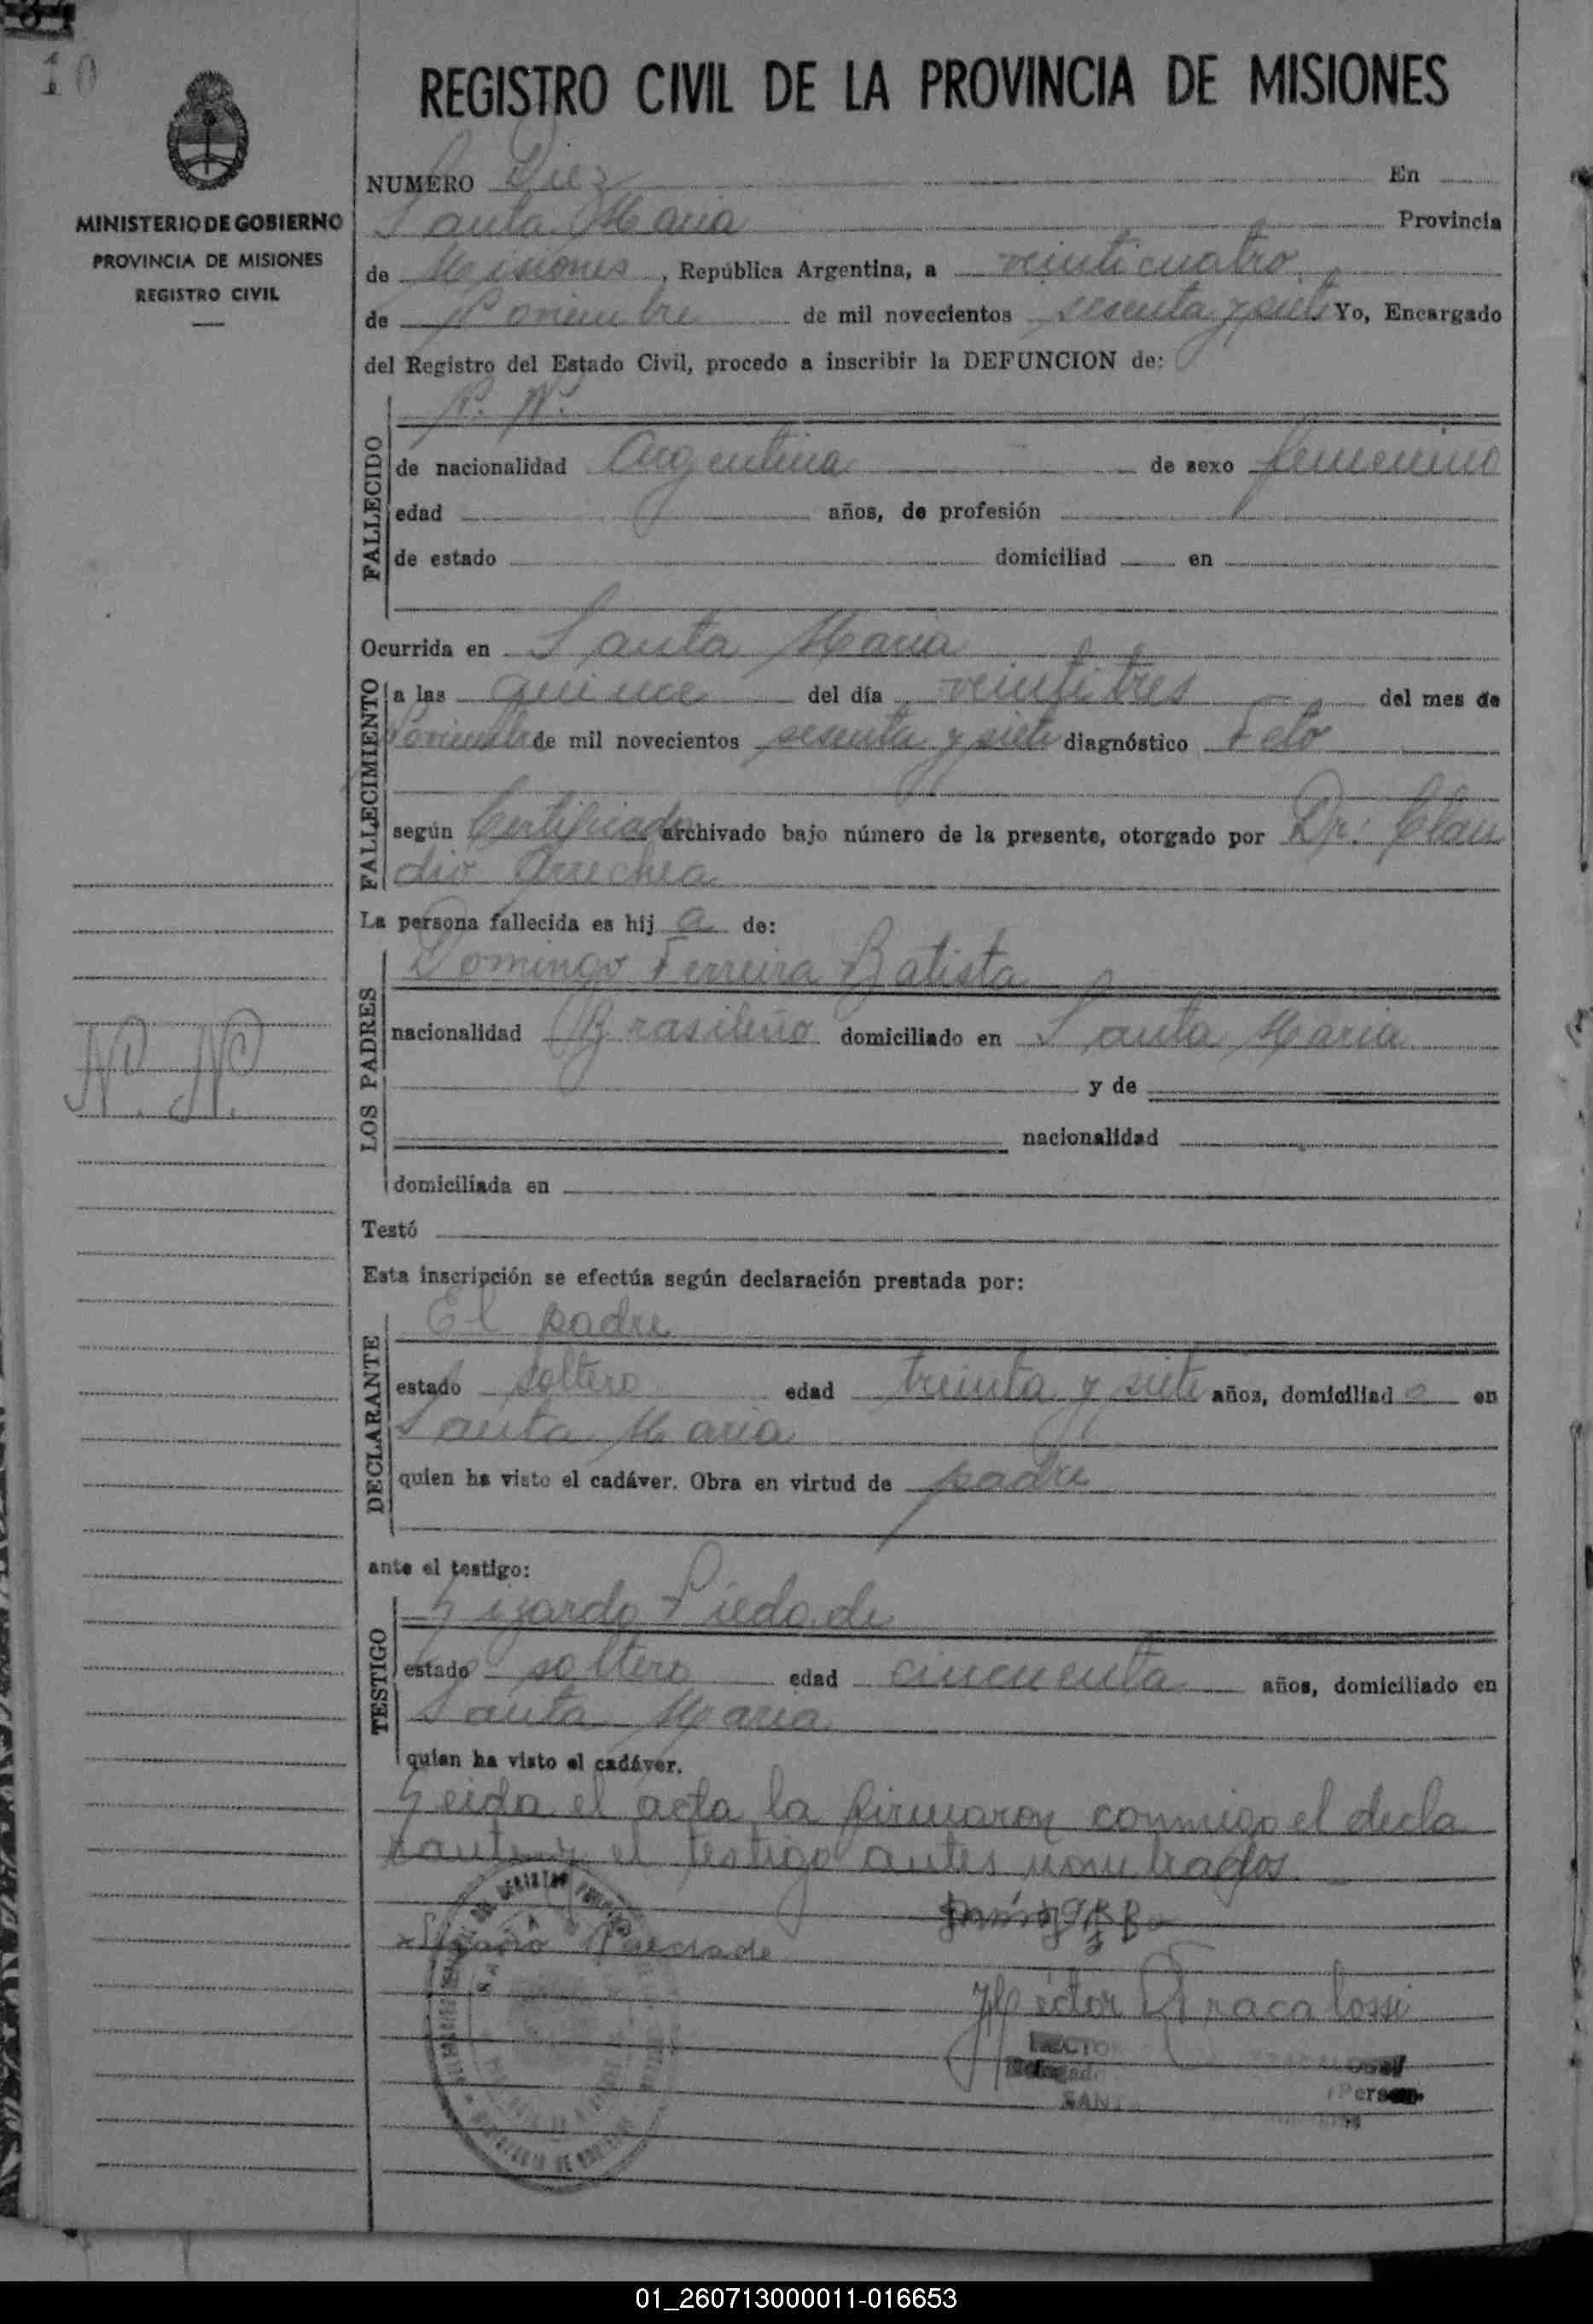 10
REGISTRO CIVIL DE LA PROVINCIA DE MISIONES
MINISTERIO DE GOBIERNO
PROVINCIA DE MISIONES
REGISTRO CIVIL
NUMERO Diez En
Santa Maria Provincia
de Misiones, República Argentina, a veinticuatro
de Noviembre de mil novecientos sesenta y siete Yo, Encargado
del Registro del Estado Civil, procedo a inscribir la DEFUNCION de:
N. N.
FALLECIDO
de nacionalidad Argentina de sexo femenino
edad años, de profesión
de estado domiciliad en
Ocurrida en Santa Maria
FALLECIMIENTO
a las quince del día veintitres del mes de
Noviembre de mil novecientos sesenta y siete diagnóstico Feto
según Certificado archivado bajo número de la presente, otorgado por Dr. Clau
dio Arrechea
La persona fallecida es hij a de:
LOS PADRES
Domingo Ferreira Batista
nacionalidad Brasileño domiciliado en Santa Maria
y de
nacionalidad
domiciliada en
N. N.
Testó
Esta inscripción se efectúa según declaración prestada por:
DECLARANTE
El padre
estado soltero edad treinta y siete años, domiciliad o en
Santa Maria
quien ha visto el cadáver. Obra en virtud de padre
ante el testigo:
TESTIGO
Lizardo Piedade
estado soltero edad cincuenta años, domiciliado en
Santa Maria
quien ha visto el cadáver.
Leida el acta la firmaron conmigo el decla
rante y el testigo antes nombrados
Héctor Fracalossi
01_260713000011-016653